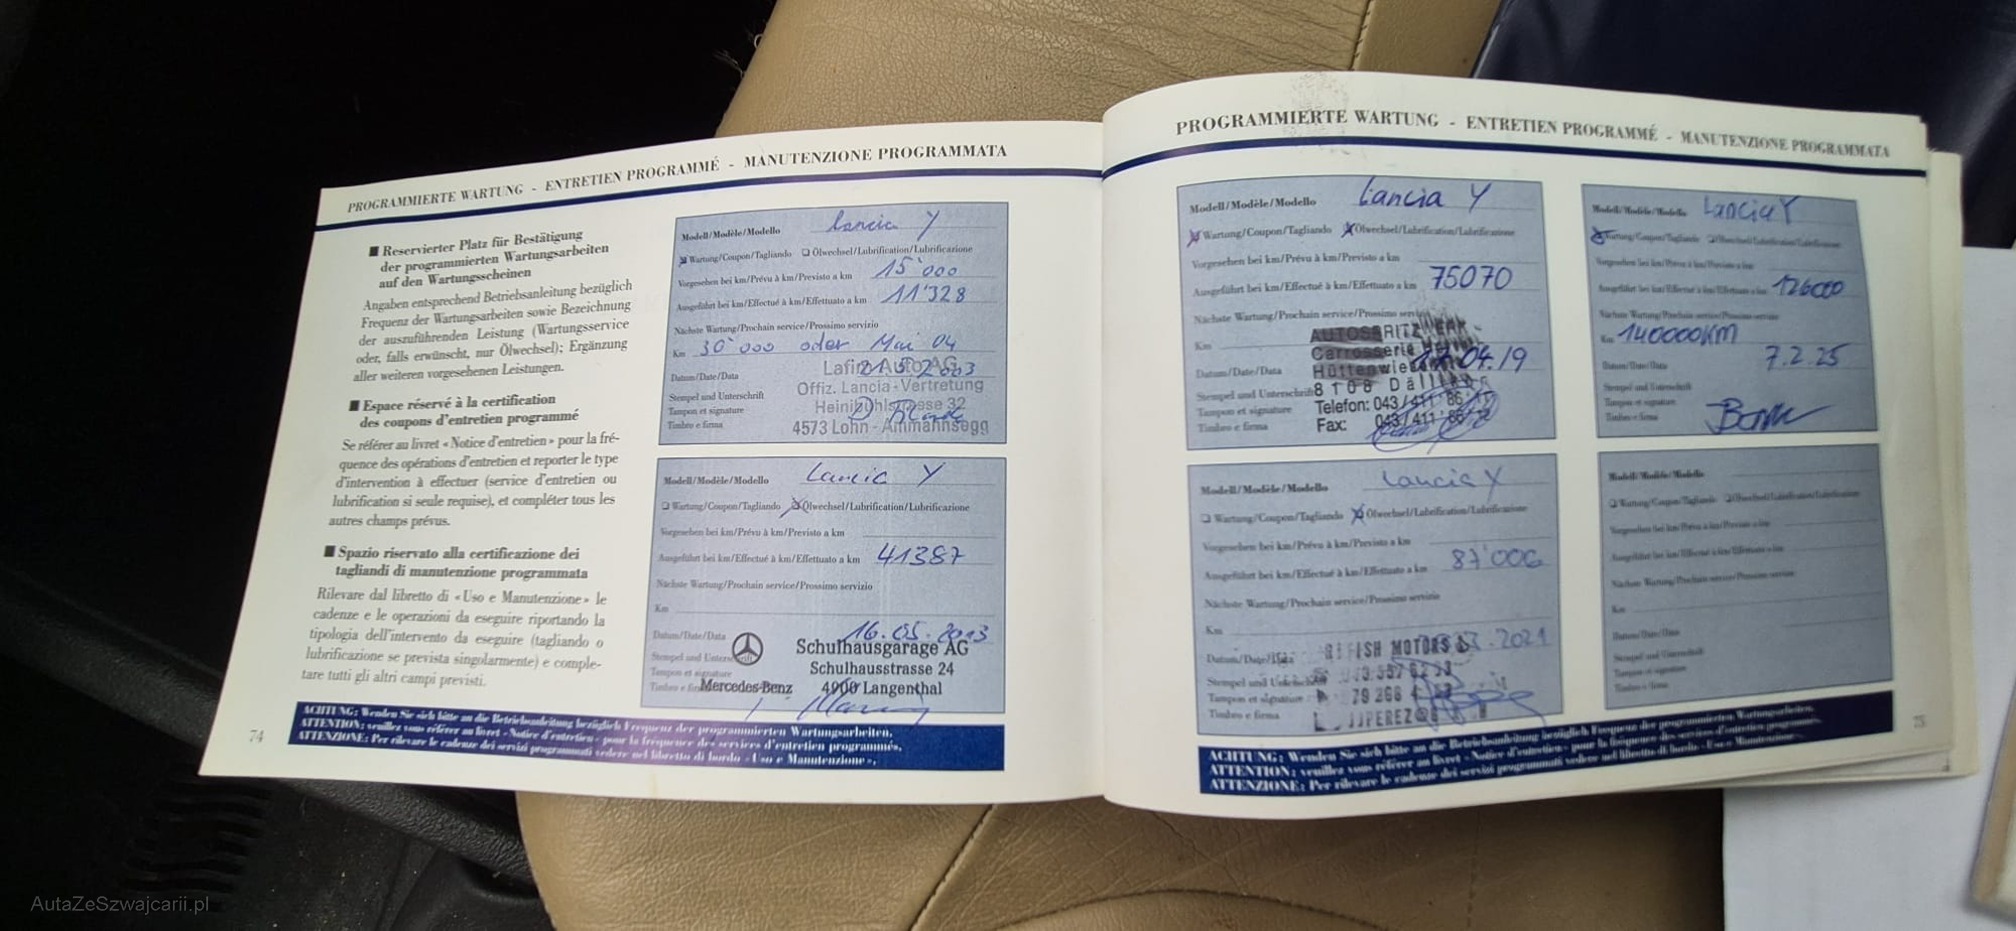 PROGRAMMIERTE WARTUNG - ENTRETIEN PROGRAMMÉ - MANUTENZIONE PROGRAMMATA
■ Reservierter Platz für Bestätigung
der programmierten Wartungsarbeiten
auf den Wartungsscheinen
Angaben entsprechend Betriebsanleitung bezüglich
Frequenz der Wartungsarbeiten sowie Bezeichnung
der auszuführenden Leistung (Wartungsservice
oder, falls erwünscht, nur Ölwechsel); Ergänzung
aller weiteren vorgesehenen Leistungen.
■ Espace réservé à la certification
des coupons d'entretien programmé
Se référer au livret « Notice d'entretien » pour la fré-
quence des opérations d'entretien et reporter le type
d'intervention à effectuer (service d'entretien ou
lubrification si seule requise), et compléter tous les
autres champs prévus.
■ Spazio riservato alla certificazione dei
tagliandi di manutenzione programmata
Rilevare dal libretto di « Uso e Manutenzione » le
cadenze e le operazioni da eseguire riportando la
tipologia dell'intervento da eseguire (tagliando o
lubrificazione se prevista singolarmente) e comple-
tare tutti gli altri campi previsti.
Modell/Modèle/Modello Lancia Y
Wartung/Coupon/Tagliando Ölwechsel/Lubrification/Lubrificazione
Vorgesehen bei km/Prévu à km/Previsto a km 15'000
Ausgeführt bei km/Effectué à km/Effettuato a km 11'328
Nächste Wartung/Prochain service/Prossimo servizio
Km 30'000 oder Mai 04
Datum/Date/Data
Stempel und Unterschrift
Tampon et signature
Timbro e firma
Offiz. Lancia-Vertretung
4573 Lohn - Ammannsegg
Modell/Modèle/Modello Lancia Y
Wartung/Coupon/Tagliando Ölwechsel/Lubrification/Lubrificazione
Vorgesehen bei km/Prévu à km/Previsto a km
Ausgeführt bei km/Effectué à km/Effettuato a km 41387
Nächste Wartung/Prochain service/Prossimo servizio
Km
Datum/Date/Data 16.05.2013
Stempel und
Tampon et signature
Timbro e
Mercedes-Benz
Schulhausgarage AG
Schulhausstrasse 24
4900 Langenthal
ACHTUNG: Wenden Sie sich bitte an die Betriebsanleitung bezüglich Frequenz der programmierten Wartungsarbeiten.
ATTENTION: veuillez vous référer au livret « Notice d'entretien » pour la fréquence des services d'entretien programmés.
ATTENZIONE: Per rilevare le cadenze dei servizi programmati vedere nel libretto di bordo « Uso e Manutenzione ».
74
PROGRAMMIERTE WARTUNG - ENTRETIEN PROGRAMMÉ - MANUTENZIONE PROGRAMMATA
Modell/Modèle/Modello Lancia Y
Wartung/Coupon/Tagliando Ölwechsel/Lubrification/Lubrificazione
Vorgesehen bei km/Prévu à km/Previsto a km
Ausgeführt bei km/Effectué à km/Effettuato a km 75070
Nächste Wartung/Prochain service/Prossimo
Km
Datum/Date/Data .04.19
Stempel und
Tampon et signature
Timbro e firma
Carrosserie
8108
Telefon: 043/411 86
Fax: 043/411 86
Modell/Modèle/Modello Lancia Y
Wartung/Coupon/Tagliando Ölwechsel/Lubrification/Lubrificazione
Vorgesehen bei km/Prévu à km/Previsto a km
Ausgeführt bei km/Effectué à km/Effettuato a km 87'006
Nächste Wartung/Prochain service/Prossimo servizio
Km
Datum/Date/Data 2021
Stempel und
Tampon et signature
Timbro e firma
MOTORS
Modell/Modèle/Modello Lancia Y
Wartung/Coupon/Tagliando Ölwechsel/Lubrification/Lubrificazione
Vorgesehen bei km/Prévu à km/Previsto a km
Ausgeführt bei km/Effectué à km/Effettuato a km 126000
Nächste Wartung/Prochain service/Prossimo servizio
Km 140000KM
Datum/Date/Data 7.2.25
Stempel und Unterschrift
Tampon et signature
Timbro e firma
Modell/Modèle/Modello
Wartung/Coupon/Tagliando Ölwechsel/Lubrification/Lubrificazione
Vorgesehen bei km/Prévu à km/Previsto a km
Ausgeführt bei km/Effectué à km/Effettuato a km
Nächste Wartung/Prochain service/Prossimo servizio
Km
Datum/Date/Data
Stempel und Unterschrift
Tampon et signature
Timbro e firma
ACHTUNG: Wenden Sie sich bitte an die Betriebsanleitung bezüglich Frequenz der programmierten Wartungsarbeiten.
ATTENTION: veuillez vous référer au livret « Notice d'entretien » pour la fréquence des services d'entretien programmés.
ATTENZIONE: Per rilevare le cadenze dei servizi programmati vedere nel libretto di bordo « Uso e Manutenzione ».
75
AutaZeSzwajcarii.pl